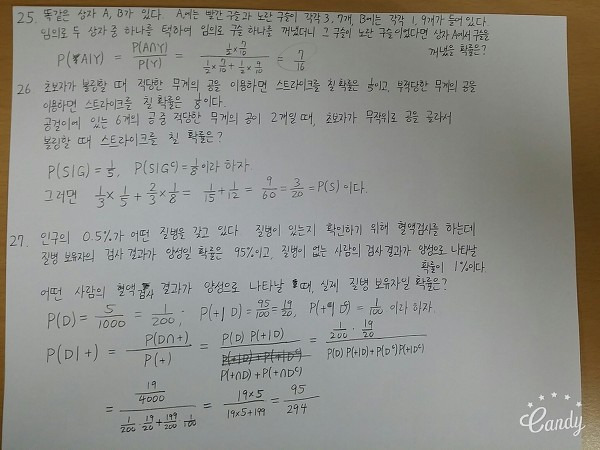 25. 똑같은 상자 A, B가 있다. A에는 빨간 구슬과 노란 구슬이 각각 3, 7개, B에는 각각 1, 9개가 들어 있다.
임의로 두 상자 중 하나를 택하여 임의로 구슬 하나를 꺼냈더니 그 구슬이 노란 구슬이었다면 상자 A에서 구슬을
꺼냈을 확률은?
P(A|Y) = P(A∩Y)/P(Y) = (1/2 × 7/10)/(1/2 × 7/10 + 1/2 × 9/10) = 7/16
26 초보자가 볼링할 때 적당한 무게의 공을 이용하면 스트라이크를 칠 확률은 1/5이고, 부적당한 무게의 공을
이용하면 스트라이크를 칠 확률은 1/8이다.
공걸이에 있는 6개의 공 중 적당한 무게의 공이 2개일 때, 초보자가 무작위로 공을 골라서
볼링할 때 스트라이크를 칠 확률은?
P(S|G) = 1/5, P(S|Gᶜ) = 1/8 이라 하자.
그러면 1/3 × 1/5 + 2/3 × 1/8 = 1/15 + 1/12 = 9/60 = 3/20 = P(S) 이다.
27. 인구의 0.5%가 어떤 질병을 갖고 있다. 질병이 있는지 확인하기 위해 혈액검사를 하는데
질병 보유자의 검사 결과가 양성일 확률은 95%이고, 질병이 없는 사람의 검사결과가 양성으로 나타날
확률이 1%이다.
어떤 사람의 혈액 검사 결과가 양성으로 나타날 때, 실제 질병 보유자일 확률은?
P(D) = 5/1000 = 1/200 ; P(+|D) = 95/100 = 19/20, P(+|Dᶜ) = 1/100 이라 하자.
P(D|+) = P(D∩+)/P(+) = P(D) P(+|D)/(P(+∩D) + P(+∩Dᶜ)) = (1/200 · 19/20)/(P(D) P(+|D) + P(Dᶜ) P(+|Dᶜ))
= (19/4000)/(1/200 · 19/20 + 199/200 · 1/100) = (19×5)/(19×5+199) = 95/294
Candy